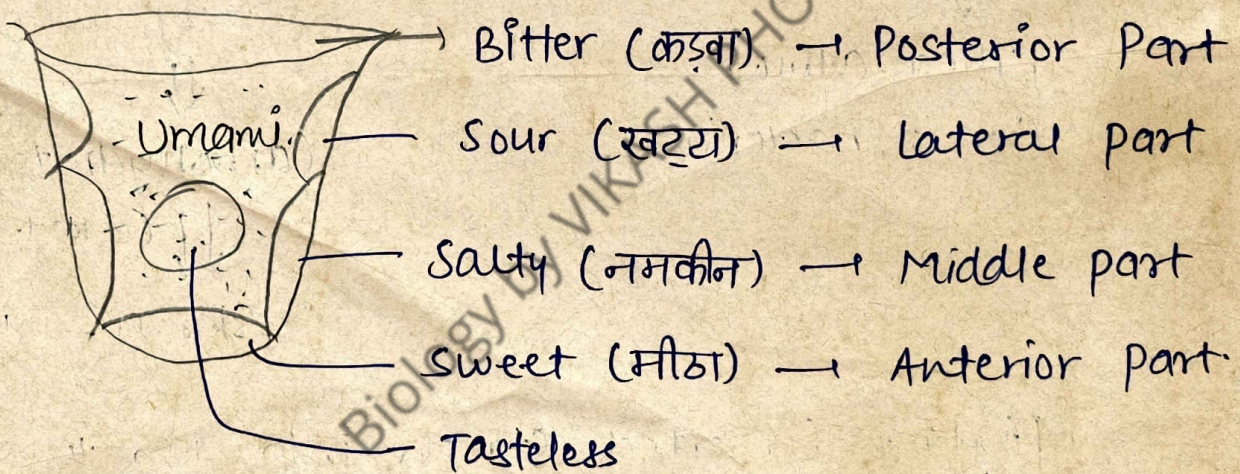 Bitter (कड़वा) → Posterior Part
Umami
Sour (खट्टा) → Lateral part
Salty (नमकीन) → Middle part
Sweet (मीठा) → Anterior part.
Tasteless
Biology by VIKASH